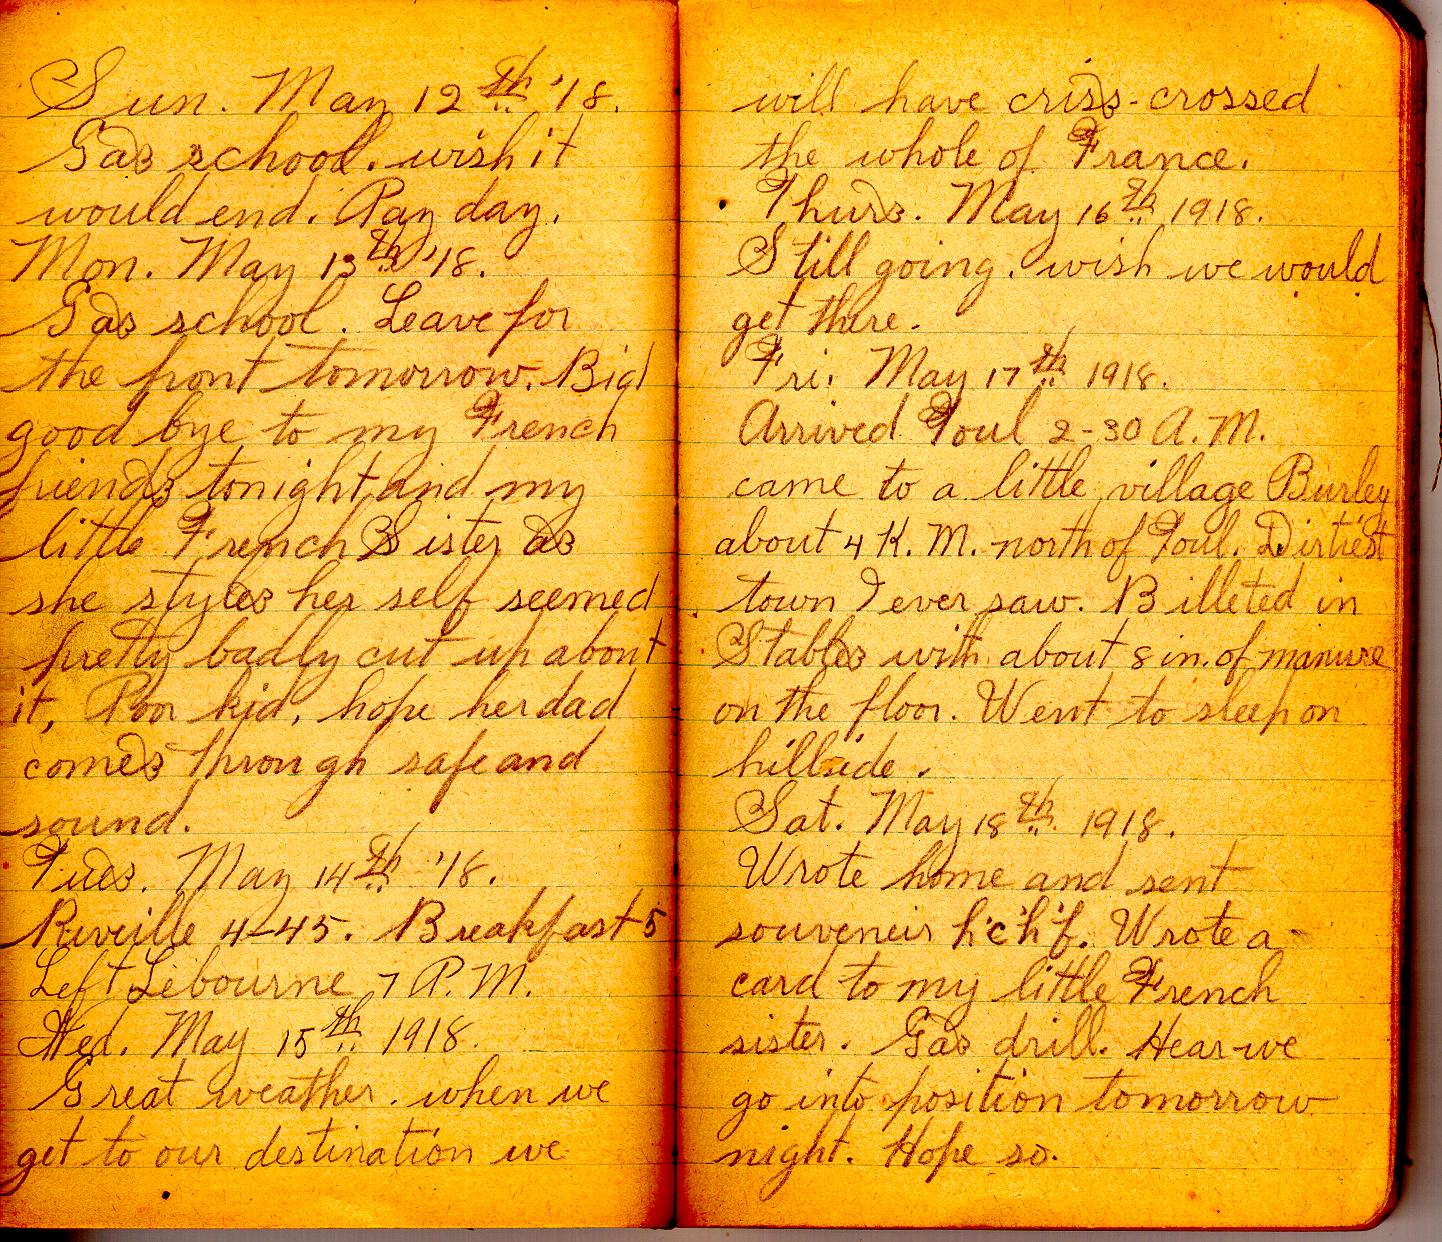 Sun. May 12th '18.
Gas school. wish it
would end. Pay day.
Mon. May 13th '18.
Gas school. Leave for
the front tomorrow. Bid
good bye to my French
friends tonight, and my
little French Sister as
she styles her self seemed
pretty badly cut up about
it, Poor kid, hope her dad
comes through safe and
sound.
Tues. May 14th '18.
Reveille 4-45. Breakfast 5
Left Lebourne 7 P.M.
Wed. May 15th 1918.
Great weather. when we
get to our destination we
will have criss-crossed
the whole of France.
Thurs. May 16th 1918.
Still going. wish we would
get there.
Fri. May 17th 1918.
Arrived Toul 2-30 A.M.
came to a little village Burley
about 4 K.M. north of Toul. Dirtiest
town I ever saw. Billeted in
Stables with about 8 in. of manure
on the floor. Went to sleep on
hillside.
Sat. May 18th 1918.
Wrote home and sent
souveneir h'c'h'f. Wrote a
card to my little French
sister. Gas drill. Hear we
go into position tomorrow
night. Hope so.